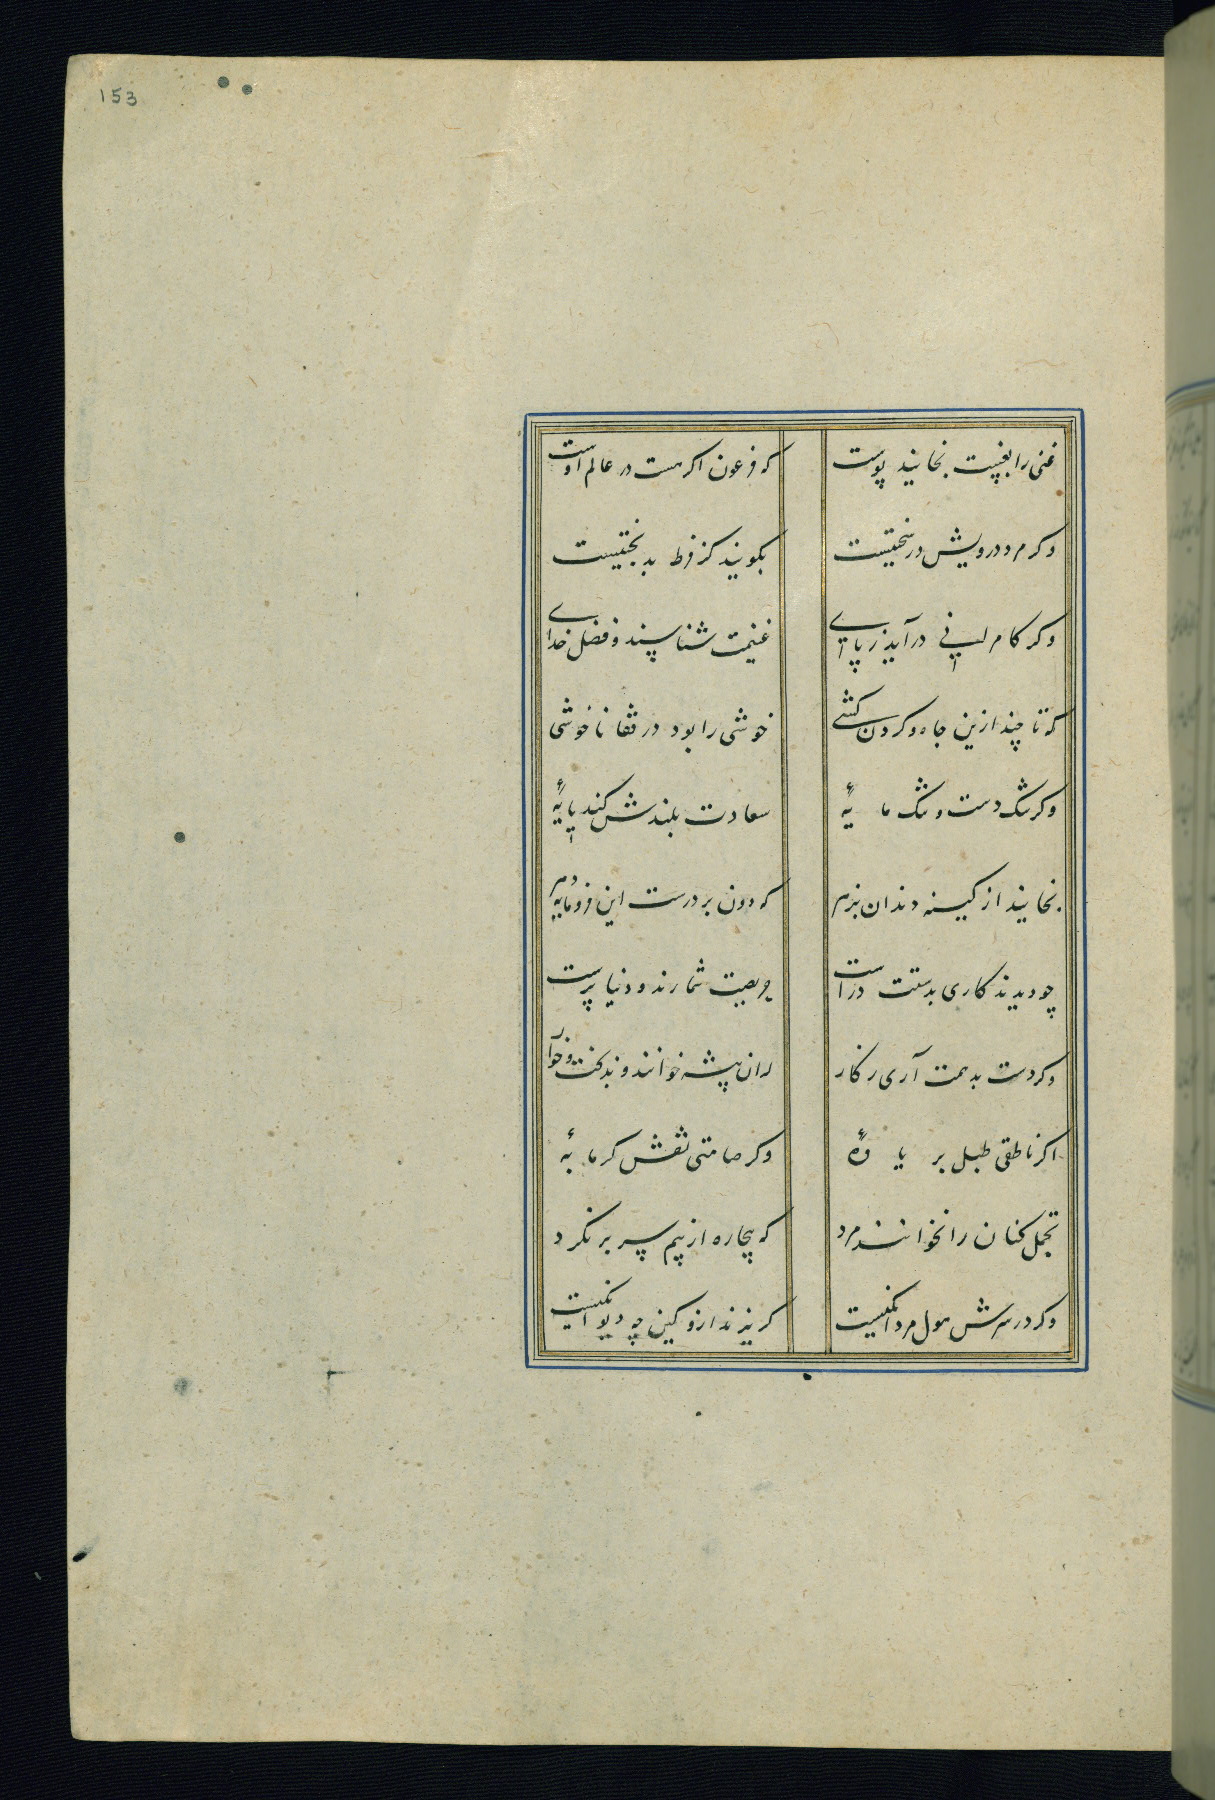 153
غنی را بغیبت بخایند پوست که فرعون اکر هست در عالم اوست
وکر مرد درویش در سختیست بکویند کز فرط بدبختیست
وکر کامرانی درآید ز پای غنیمت شناسند و فضل خدای
که تا چند ازین جاه و کردن کشی خوشی را بود در قفا ناخوشی
وکر تنک دستی تنک مایهٔ سعادت بلندش کند پایهٔ
بخایند از کینه دندان بزهر که دون پرورست این فرومایه دهر
چو دیدند کاری بدستت درست حریصت شمارند و دنیا پرست
وکر دست همت بداری ز کار کدا پیشه خوانند و بدبخت و خوار
اکر ناطقی طبل پر یاوهٔ وکر صامتی نقش کرمابهٔ
تحمل کنان را نخوانند مرد که بیچاره از بیم سر بر نکرد
وکر در سرش هول مردانکیست کریزند ازو کین چه دیوانکیست